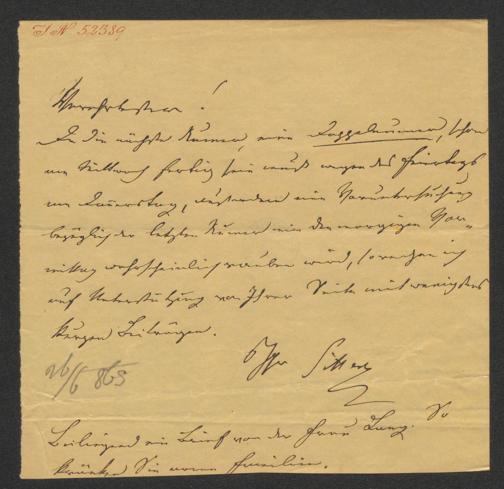 I N 52389
Verehrtester!
Da die nächste Numer, eine Doppelnumer, schon
am Mittwoch fertig sein muß wegen des Feiertags
am Donnerstag, außerdem eine Voruntersuchung
bezüglich der letzten Numer mir den morgigen Vor-
mittag wahrscheinlich rauben wird, so rechne ich
auf Unterstützung von Ihrer Seite mit wenigstens
kurzen Beiträgen.
Ihr
26/6 865
Beiliegend ein Brief von der Frau Lang. So
kränken Sie arme Familien.